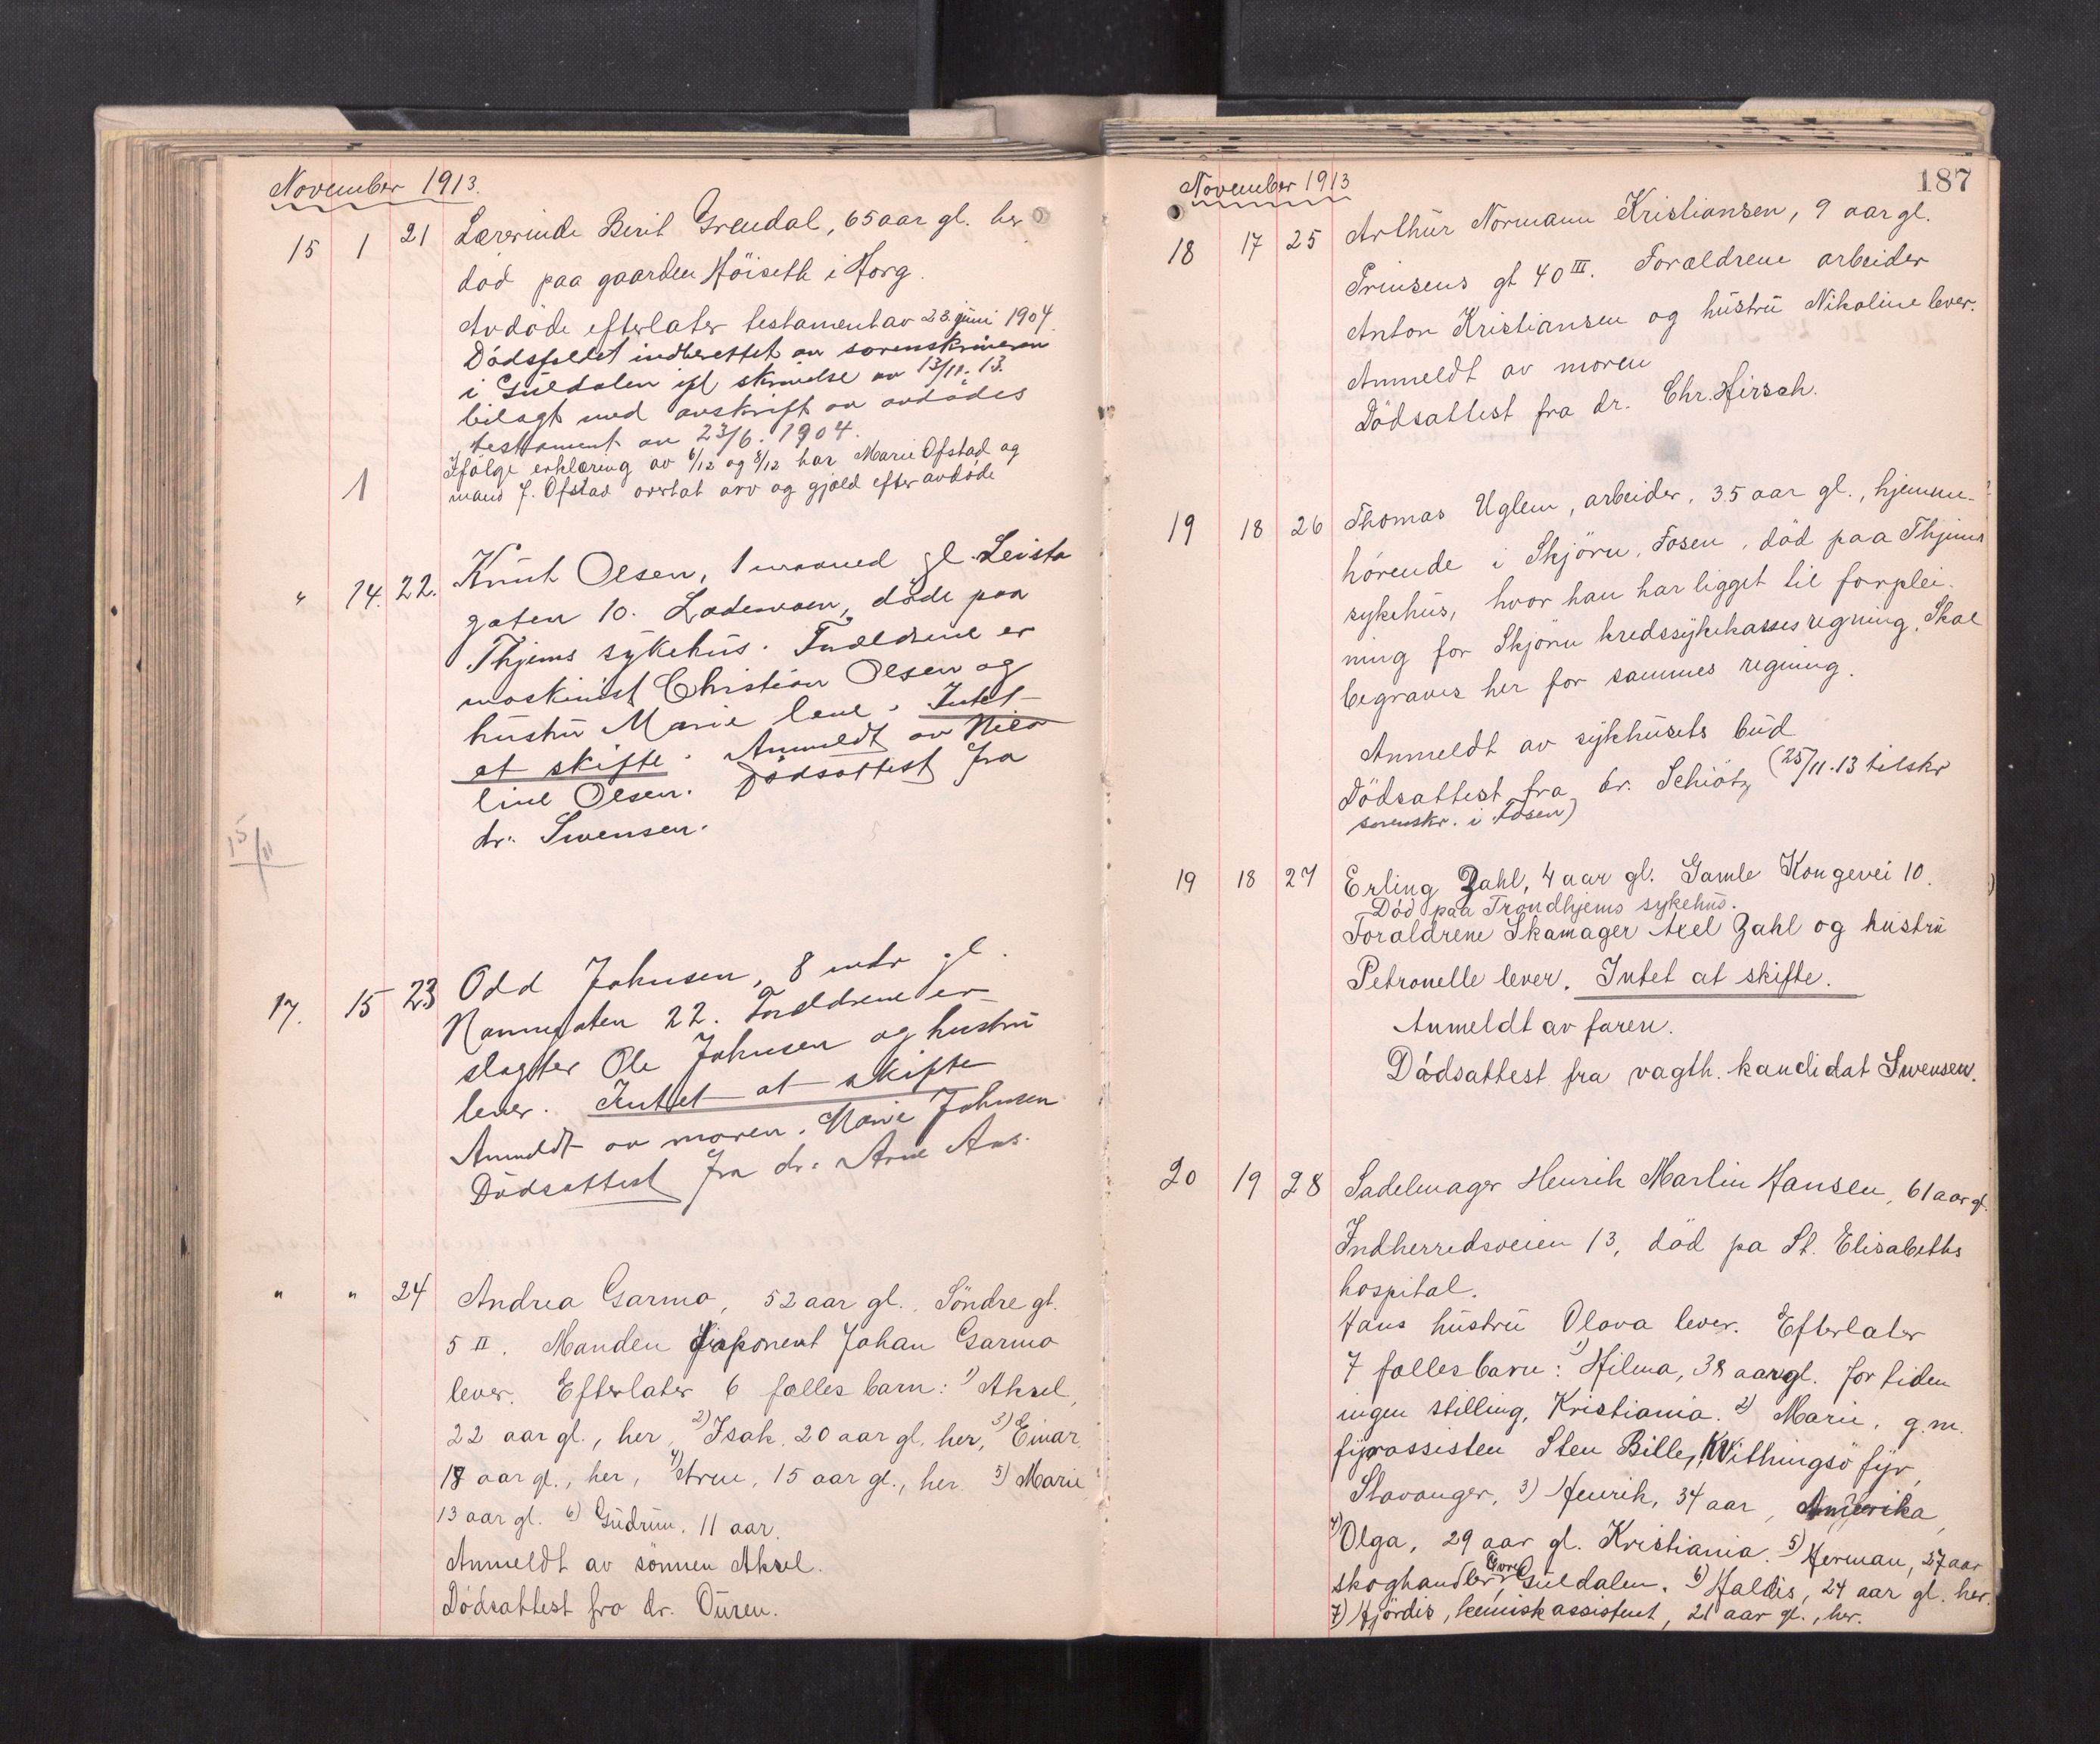 November 1913.
15 1 21 Lærerinde Berit Grendal, 65 aar gl. her
död paa gaarden Höiseth i Horg.
Avdöde efterlater testament av 23. juni 1904.
Dödsfaldet indberettet av sorenskriveren
i Guldalen ifl skrivelse av 13/11. 13.
bilagt med avskrift av avdödes
testament av 23/6. 1904.
Ifølge erklæring av 6/12 og 8/12 har Marie Ofstad og
1 mand J. Ofstad overtat arv og gjæld efter avdöde
" 14. 22. Knut Olsen, 1 maaned gl. Leistad
gaten 10. Lademoen, døde paa
Thjems sykehus. Forældrene er
maskinist Christian Olsen og
hustru Marie leve. Intet
at skifte. Anmeldt av Nico
line Olsen. Dödsattest fra
dr. Swensen.
15/11
17. 15 23 Odd Johnsen, 8 mdr gl.
Nonnegaten 22. Forældrene er
slagter Ole Johnsen og hustru
lever. Intet at skifte
Anmeldt av moren. Marie Johnsen
Dödsattest fra dr. Arne Aas.
" " 24 Andrea Garmo, 52 aar gl., Söndre gt.
5 II. Manden disponent Johan Garmo
lever. Efterlater 6 fælles barn: 1) Aksel,
22 aar gl., her, 2) Isak 20 aar gl. her, 3) Einar
18 aar gl., her, 4) Arne, 15 aar gl., her. 5) Marie
13 aar gl. 6) Gudrun, 11 aar.
Anmeldt av sönnen Aksel.
Dödsattest fra dr. Ouren.
187
November 1913
18 17 25 Arthur Normann Kristiansen, 9 aar gl.
Prinsens gt 40 III. Forældrene arbeider
Anton Kristiansen og hustru Nikoline lever.
Anmeldt av moren
Dödsattest fra dr. Chr. Hirsch.
19 18 26 Thomas Uglem, arbeider, 35 aar gl., hjemme-
hörende i Skjörn, Fosen, död paa Thjems
sykehus, hvor han har ligget til forplei-
ning for Skjörn kredssykekasses regning. Skal
begraves her for sammes regning.
Anmeldt av sykhusets bud
Dödsattest fra dr. Schiötz (25/11.13 tilskr
sorenskr. i Fosen)
19 18 27 Erling Zahl, 4 aar gl. Gamle Kongevei 10.
Död paa Trondhjems sykehus.
Forældrene Skomager Axel Zahl og hustru
Petronelle lever. Intet at skifte.
Anmeldt av faren.
Dödsattest fra vagth. kandidat Swensen.
20 19 28 Sadelmager Henrik Martin Hansen, 61 aar gl.
Indherredsveien 13, död pa St. Elisabeths
hospital.
Hans hustru Olava lever. Efterlater
7 fælles barn: 1) Hilma, 38 aar gl. for tiden
ingen stilling, Kristiania. 2) Marie, g.m.
fyrassisten Sten Bille, Hvithungsö fyr,
Stavanger, 3) Henrik, 34 aar, Amerika,
4) Olga, 29 aar gl. Kristiania. 5) Herman, 27 aar
skoghandler, Guldalen. 6) Haldis, 24 aar gl. her.
7) Hjördis, kemisk assistent, 21 aar gl., her.